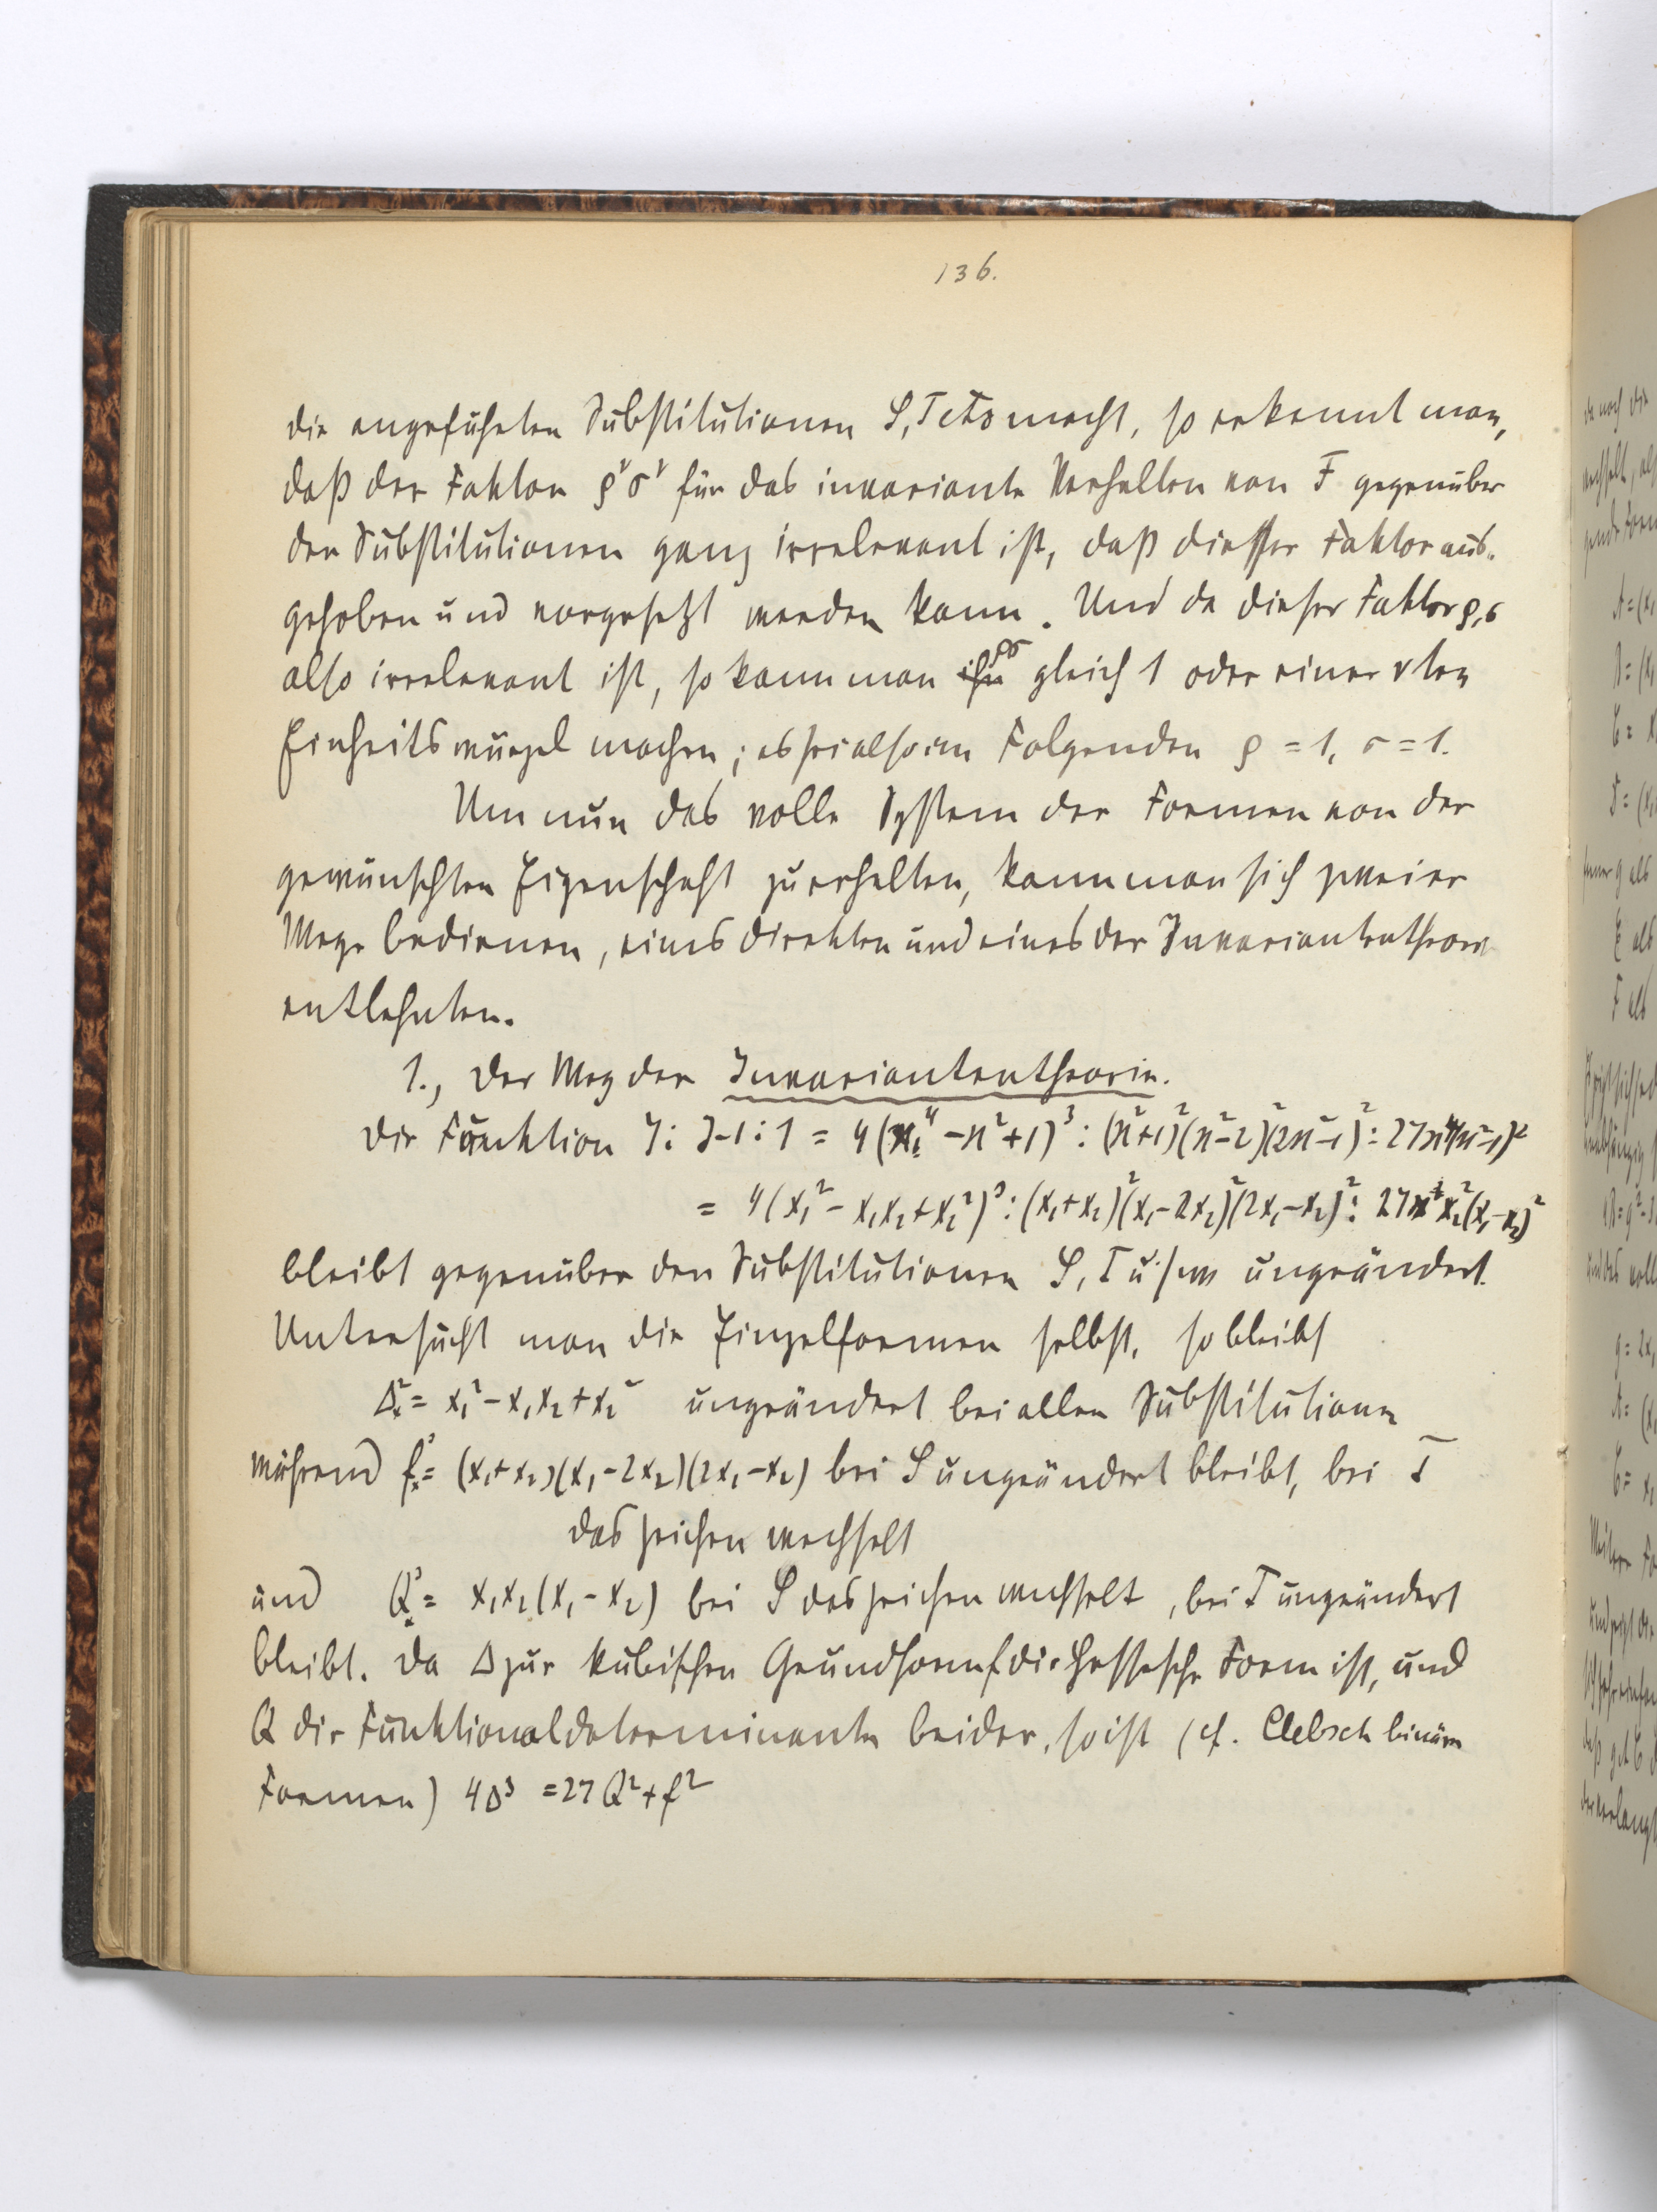 136.
die angeführten Substitutionen S, T etc macht, so erkennt man,
daß der Faktor ρ^ν σ^ν für das invariante Verhalten von F gegenüber
den Substitutionen ganz irrelevant ist, daß dieser Faktor aus-
gehoben und vorgesetzt werden kann. Und da dieser Faktor ρ,σ
also irrelevant ist, so kann man ρσ gleich 1 oder einer νten
Einheitswurzel machen; es sei also im Folgenden ρ = 1, σ = 1.
Um nun das volle System der Formen von der
gewünschten Eigenschaft zu erhalten, kann man sich zweier
Wege bedienen, eines direkten und eines der Invariantentheorie
entlehnten.
1., Der Weg der Invariantentheorie.
Die Funktion J: J-1:1 = 4(κ⁴ - κ² + 1)³ : (κ²+1)²(κ²-2)²(2κ²-1)² : 27κ⁴(κ²-1)²
= 4(x₁² - x₁x₂ + x₂²)³ : (x₁+x₂)²(x₁-2x₂)²(2x₁-x₂)² : 27x₁²x₂²(x₁-x₂)²
bleibt gegenüber den Substitutionen S, T u.s.w ungeändert.
Untersucht man die Einzelformen selbst, so bleibt
Δₓ² = x₁² - x₁x₂ + x₂² ungeändert bei allen Substitutionen
während fₓ³ = (x₁+x₂)(x₁-2x₂)(2x₁-x₂) bei S ungeändert bleibt, bei T
das Zeichen wechselt
und Qₓ³ = x₁x₂(x₁-x₂) bei S das Zeichen wechselt, bei T ungeändert
bleibt. Da Δ zur kubischen Grundform f die Hessesche Form ist, und
Q die Funktionaldeterminante beider, so ist (cf. Clebsch binäre
Formen) 4Δ³ = 27Q² + f²